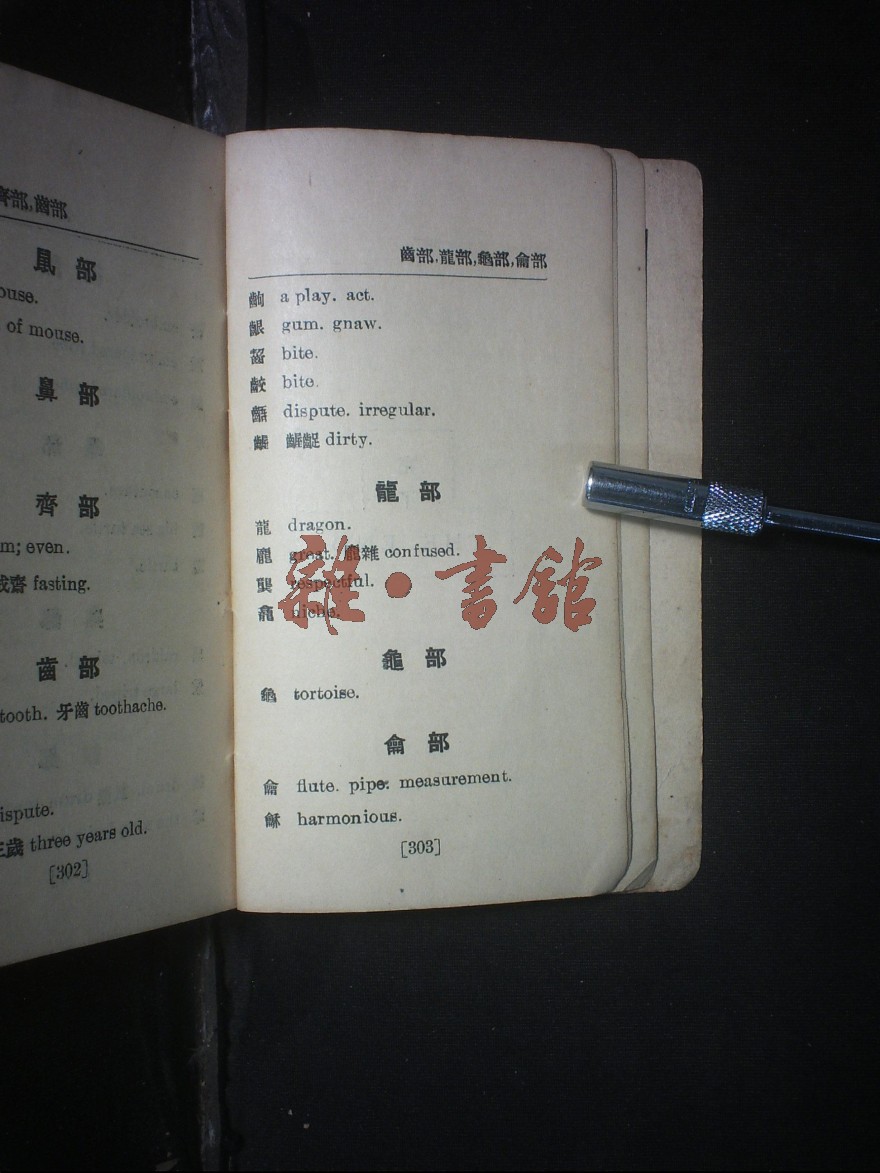 齊部,齒部
鼠 部
ouse.
of mouse.
鼻 部
齊 部
m; even.
戒齋 fasting.
齒 部
tooth. 牙齒 toothache.
ispute.
三歲 three years old.
[302]
齒部,龍部,龜部,龠部
齣 a play. act.
齦 gum. gnaw.
齧 bite.
齩 bite.
齬 dispute. irregular.
齷 齷齪 dirty.
龍 部
龍 dragon.
龐 great. 龐雜 confused.
龔 respectful.
龕 niche.
龜 部
龜 tortoise.
龠 部
龠 flute. pipe. measurement.
龢 harmonious.
[303]
雜·書館